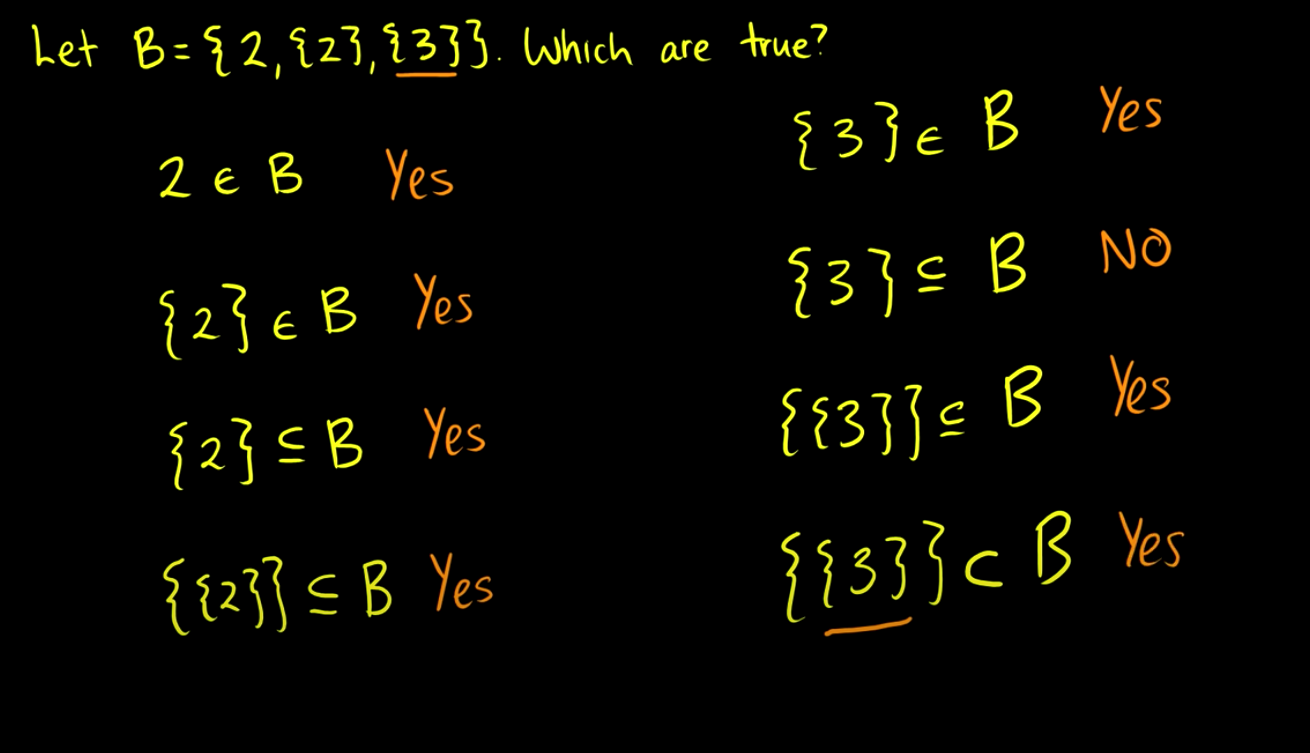 Let B={2,{2},{3}}. Which are true?
2 ∈ B Yes
{2} ∈ B Yes
{2} ⊆ B Yes
{{2}} ⊆ B Yes
{3} ∈ B Yes
{3} ⊆ B NO
{{3}} ⊆ B Yes
{{3}} ⊂ B Yes